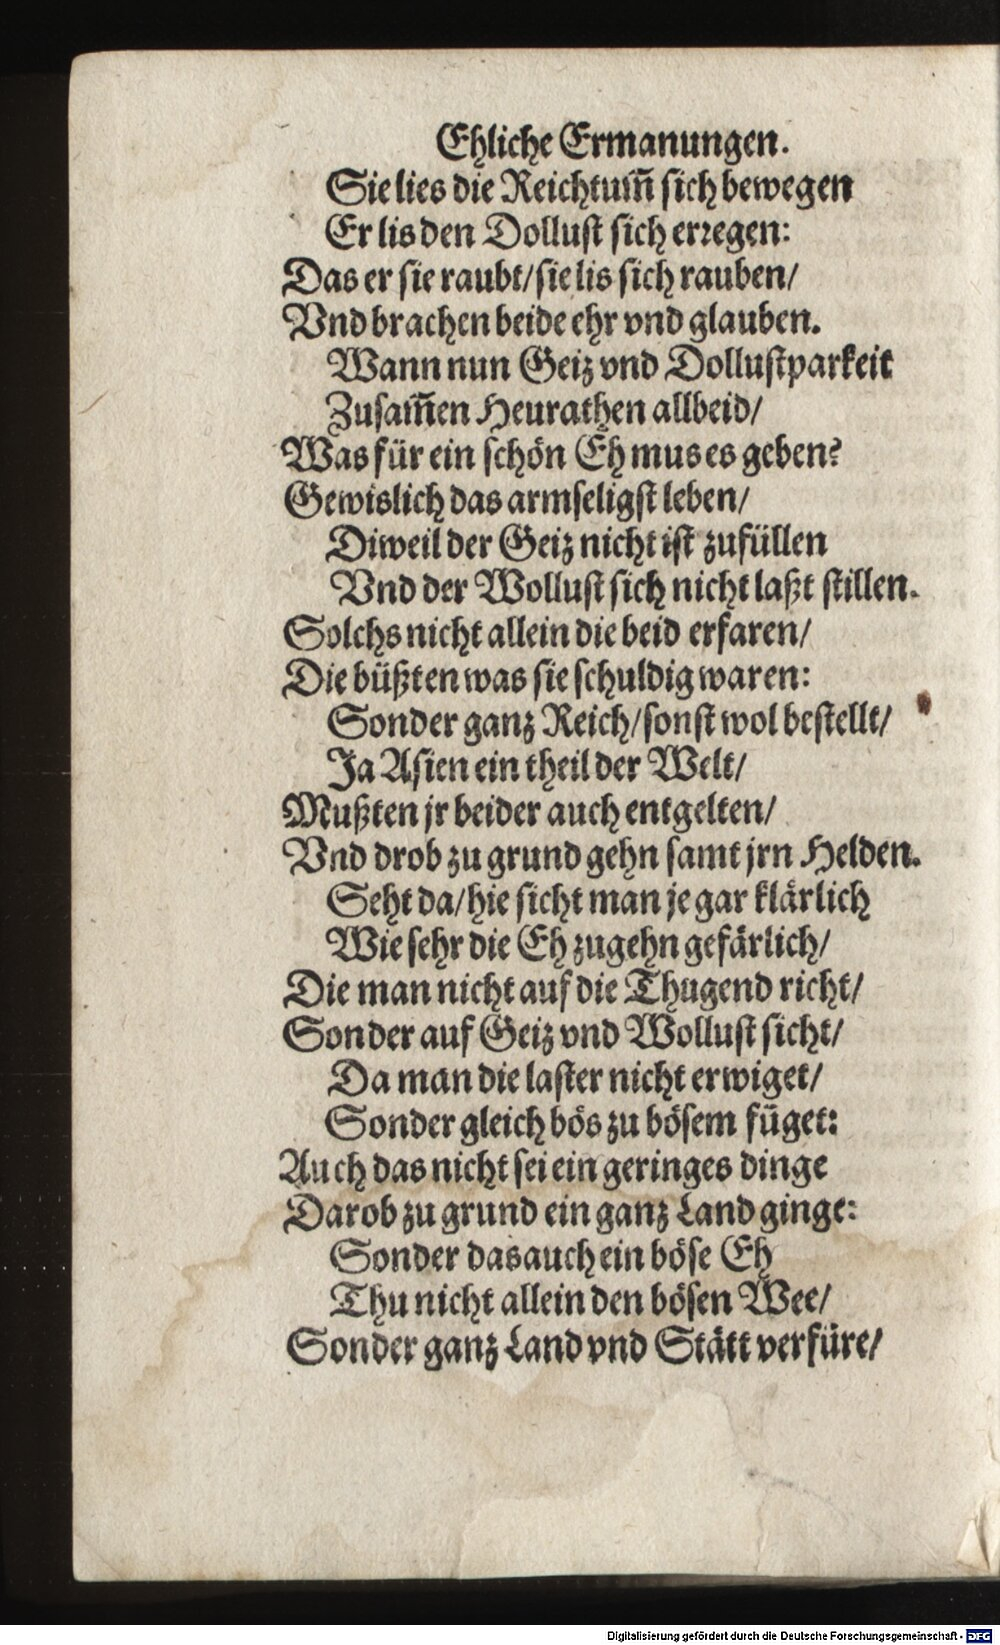 Ehliche Ermanungen.
Sie lies die Reichtum̃ sich bewegen
Er lis den Dollust sich erꝛegen:
Das er sie raubt/sie lis sich rauben/
Vnd brachen beide ehr vnd glauben.
Wann nun Geiz vnd Dollustparkeit
Zusam̃en Heurathen allbeid/
Was für ein schön Eh mus es geben?
Gewislich das armseligst leben/
Diweil der Geiz nicht ist zufüllen
Vnd der Wollust sich nicht laßt stillen.
Solchs nicht allein die beid erfaren/
Die büßten was sie schuldig waren:
Sonder ganz Reich/sonst wol bestellt/
Ja Asien ein theil der Welt/
Mußten jr beider auch entgelten/
Vnd drob zu grund gehn samt jrn Helden.
Seht da/hie sicht man je gar klärlich
Wie sehr die Eh zugehn gefärlich/
Die man nicht auf die Thugend richt/
Sonder auf Geiz vnd Wollust sicht/
Da man die laster nicht erwiget/
Sonder gleich bös zu bösem füget:
Auch das nicht sei ein geringes dinge
Darob zu grund ein ganz Land ginge:
Sonder das auch ein böse Eh
Thu nicht allein den bösen Wee/
Sonder ganz Land vnd Stätt verfüre/
Digitalisierung gefördert durch die Deutsche Forschungsgemeinschaft - DFG